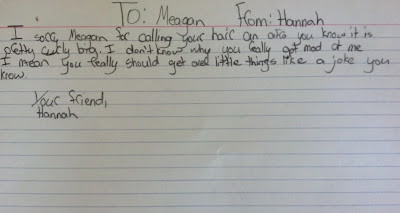 To: Meagan From: Hannah
I sorry Meagan for calling your hair an afro you know it is
pretty curly big. I don't know why you really got mad at me
I mean you really should get over little things like a joke you
know.
Your friend,
Hannah